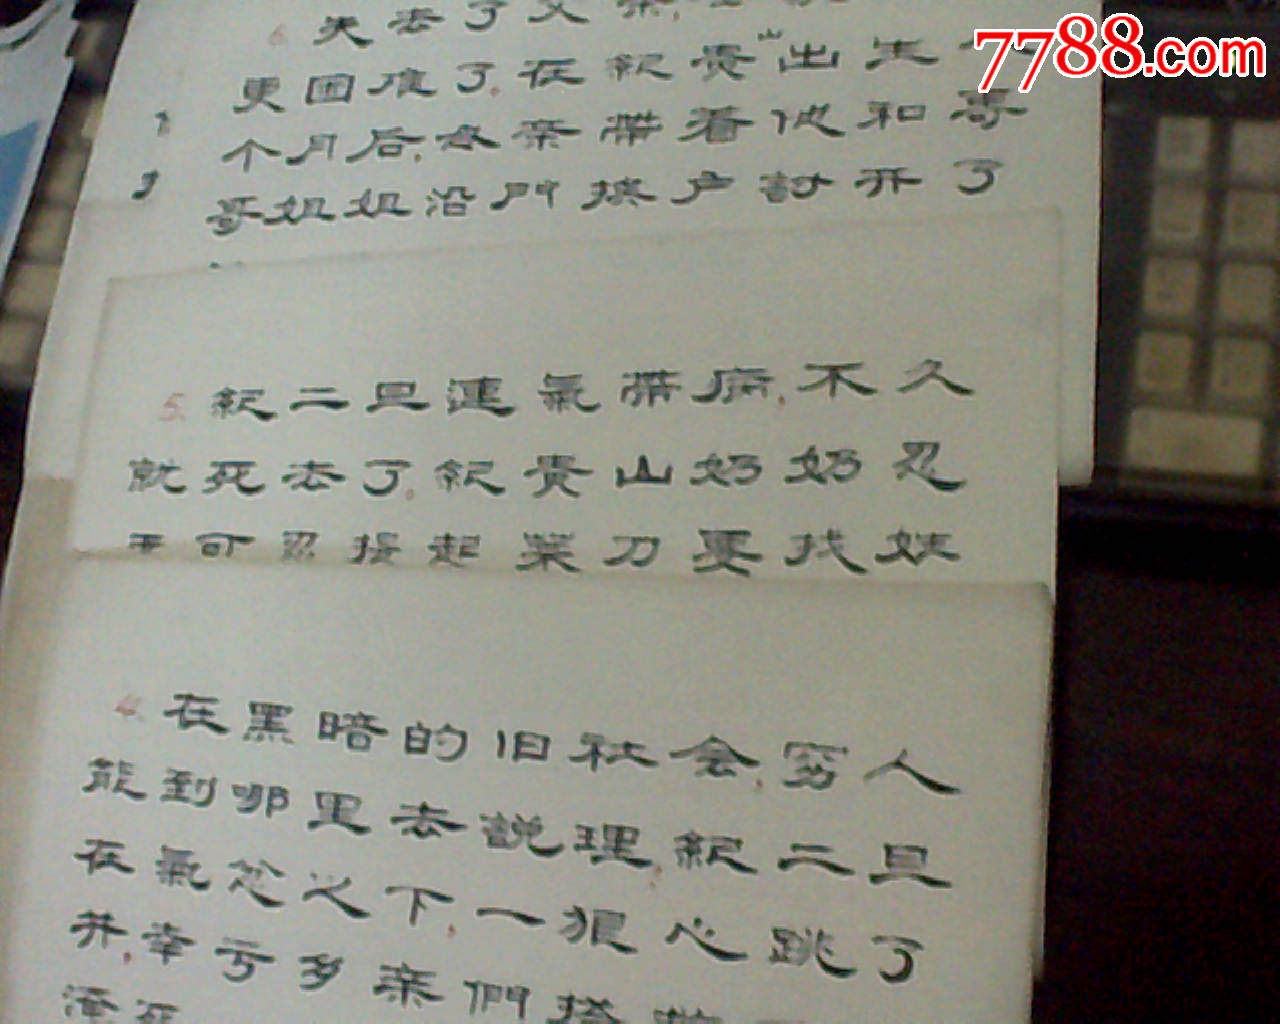 7788.com
6. 失去了父亲,
更困难了,在紀贵山出生
个月后,母亲带着他和哥
哥姐姐沿門挨户討开了
5. 紀二旦連氣带病,不久
就死去了,紀贵山奶奶忍
无可忍提起菜刀要找
4. 在黑暗的旧社会,穷人
能到哪里去説理,紀二旦
在氣忿之下,一狠心跳了
井,幸亏乡亲們搭
淹死